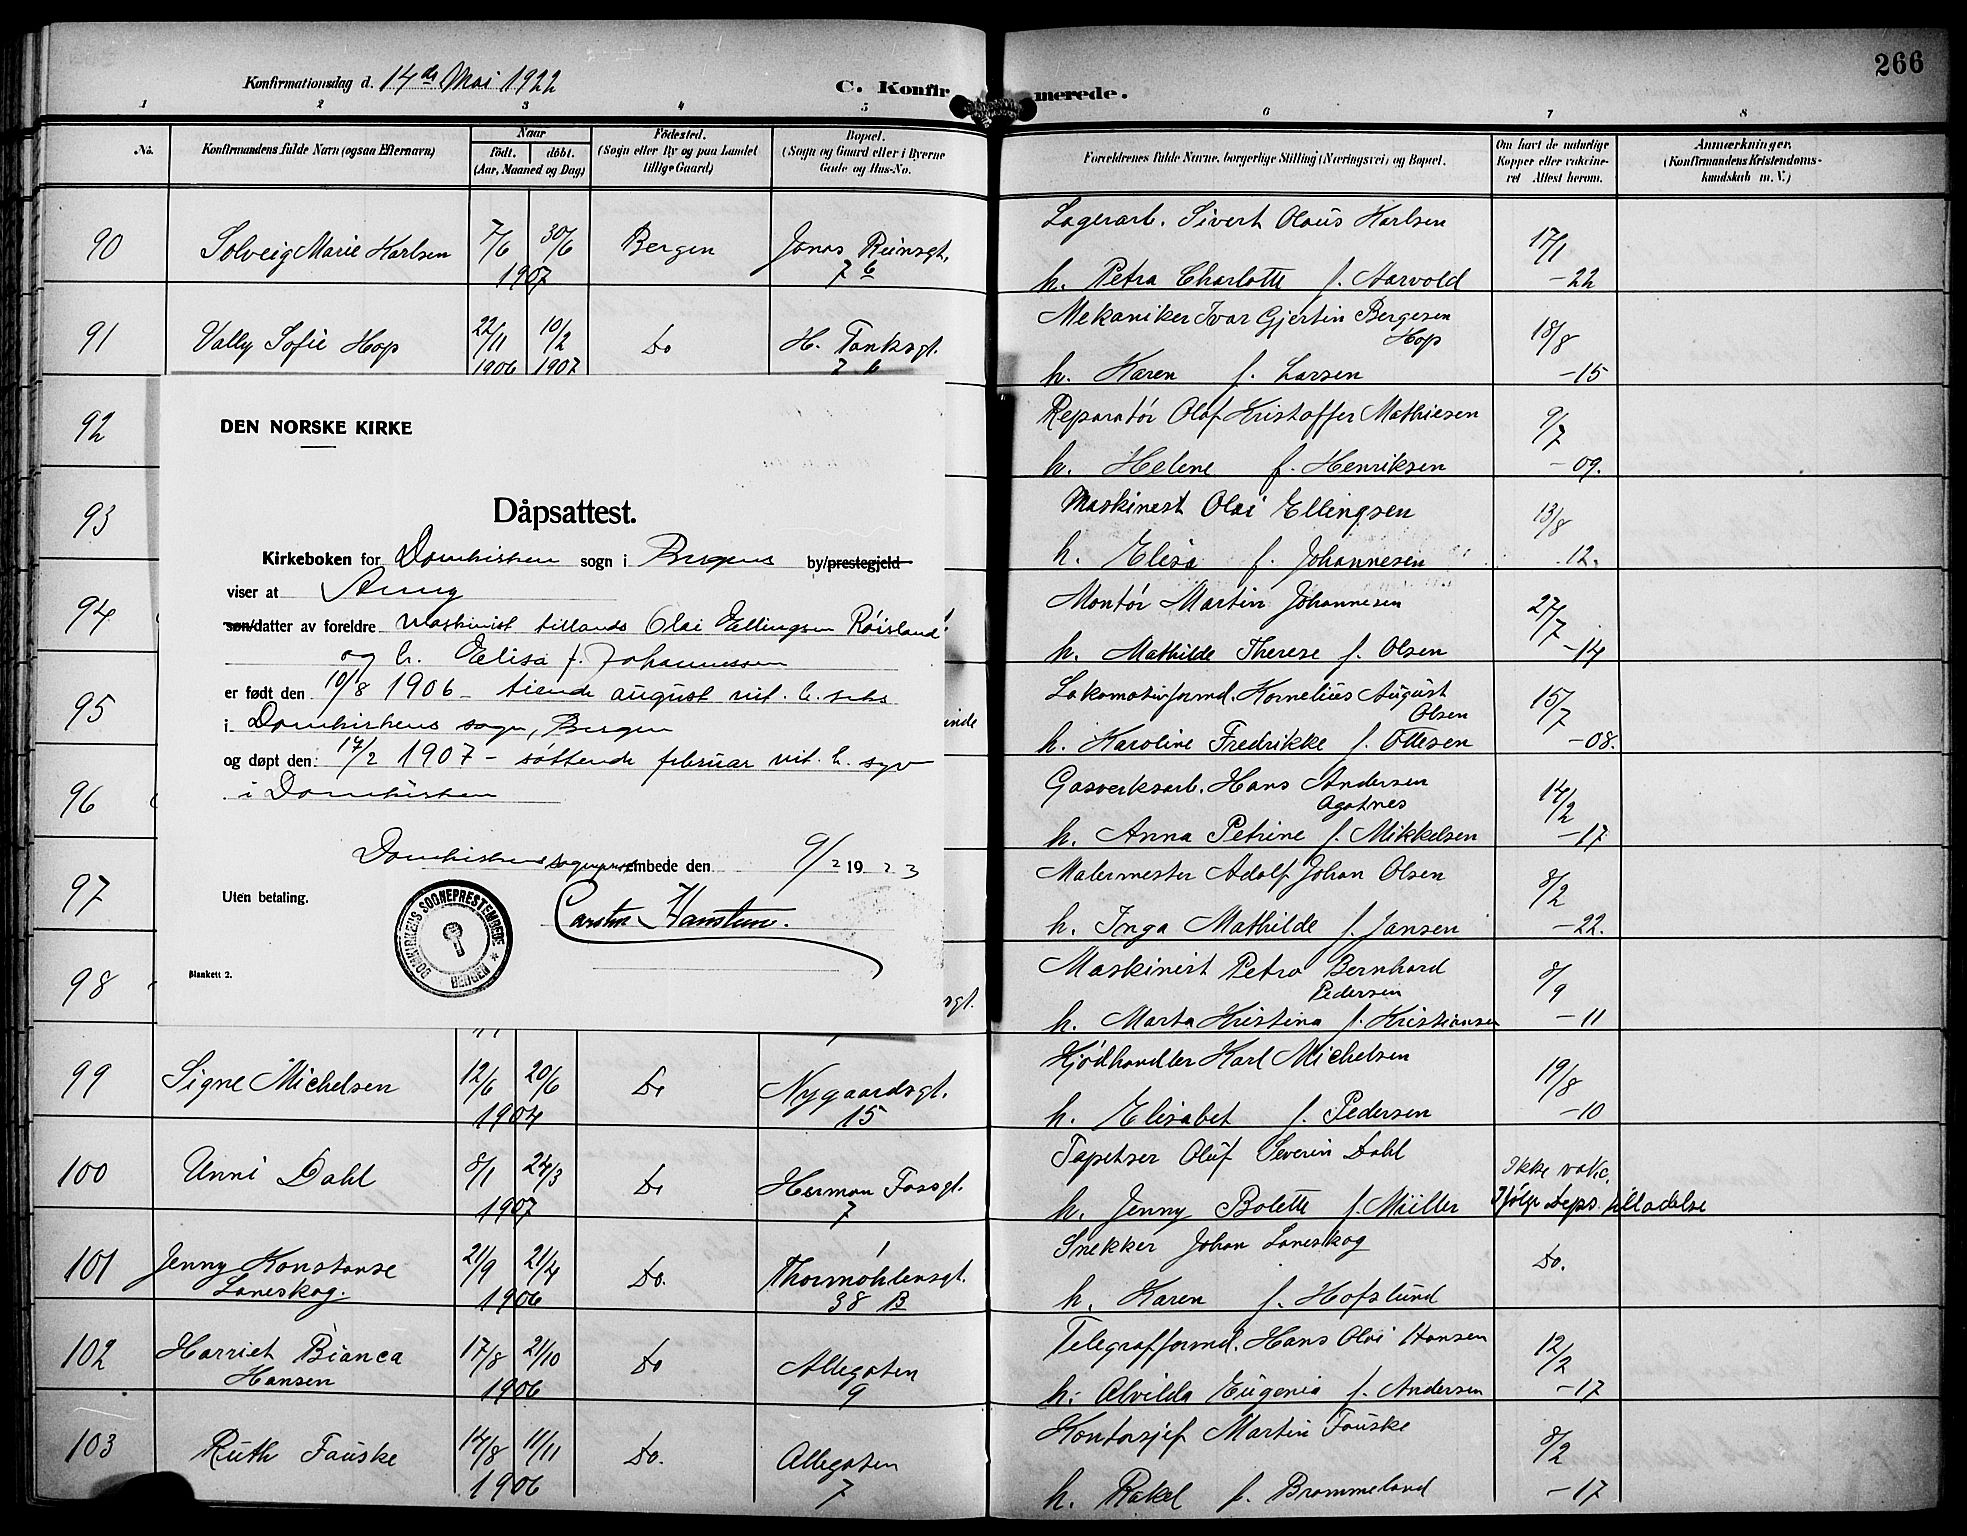 266
Konfirmationsdag d. 14de Mai 1922
C. Konfirmerede.
1 2 3 4 5 6 7 8
No. Konfirmandens fulde Navn (ogsaa Efternavn)
Naar
født. døbt.
(Aar, Maaned og Dag)
Fødested.
(Sogn eller By og paa Landet
tillige Gaard)
Bopæl.
(Sogn og Gaard eller i Byerne
Gade og Hus-No.
Forældrenes fulde Navne, borgerlige Stilling (Næringsvei) og Bopæl.
Om havt de naturlige
Kopper eller vakcine-
ret Attest herom.
Anmærkninger.
(Konfirmandens Kristendoms-
kundskab m. V.)
90 Solveig Marie Karlsen 7/6 30/6 1907 Bergen Jonas Reinsgt. 7 b
Lagerarb. Sivert Olaus Karlsen 17/1
h. Petra Charlotte f. Aarvold -22
91 Vally Sofie Hop 22/11 1906 10/2 1907 Do H. Tanksgt. 7 b
Mekaniker Ivar Gjertin Bergesen Hop 18/8
h. Karen f. Larsen -15
92
Reparatør Olaf Kristoffer Mathiesen 9/7
h. Helene f. Henriksen -09.
93
Maskinist Olai Ellingsen 13/8
h. Elisa f. Johannesen 12.
94
Montør Martin Johannesen 27/7
h. Mathilde Therese f. Olsen -14
95
Lokomotivformd. Kornelius August Olsen 15/7
h. Karoline Fredrikke f. Ottesen -08.
96
Gasverksarb. Hans Andersen Agotnes 14/2
h. Anna Petrine f. Mikkelsen -17
97
Malermester Adolf Johan Olsen 8/2
h. Inga Mathilde f. Jansen -22.
98 sgt.
Maskinist Petro Bernhard Pedersen 8/9
h. Marta Kristina f. Kristiansen -11
DEN NORSKE KIRKE
Dåpsattest.
Kirkeboken for Domkirken sogn i Bergens by/prestegjeld
viser at Anny
søn/datter av foreldre Maskinist tillands Olai Ellingsen Røisland
og h. Elisa f. Johannessen
er født den 10/8 1906 - tiende august nit. h. seks
i Domkirkens sogn, Bergen
og døpt den 17/2 1907 - søttende februar nit. h. syv
i Domkirken
Domkirkens sogneprestembede den 9/2 1923
Uten betaling.
Carsten Hansteen.
DOMKIRKENS SOGNEPRESTEMBEDE * BERGEN
Blankett 2.
99 Signe Michelsen 12/6 20/6 1904 Do Nygaardsgt. 15
Kjødhandler Karl Michelsen 19/8
h. Elisabet f. Pedersen -10
100 Unni Dahl 8/1 24/3 1907 Do Herman Fossgt. 7
Tapetser Oluf Severin Dahl Ikke vakc.
h. Jenny Bolette f. Müller Ifølge Deps. tilladelse
101 Jenny Konstanse Laneskog. 21/9 21/4 1906 Do. Thormøhlensgt. 38 B
Snekker Johan Laneskog Do.
h. Karen f. Hofslund
102 Harriet Bianca Hansen 17/8 21/10 1906 Do Allegaten 9
Telegrafformd. Hans Olai Hansen 12/2
h. Alvilda Eugenia f. Andersen -17
103 Ruth Fauske 14/8 11/11 1906 Do. Allegaten 7
Kontorsjef Martin Fauske 8/2
h. Rakel f. Brommeland -17